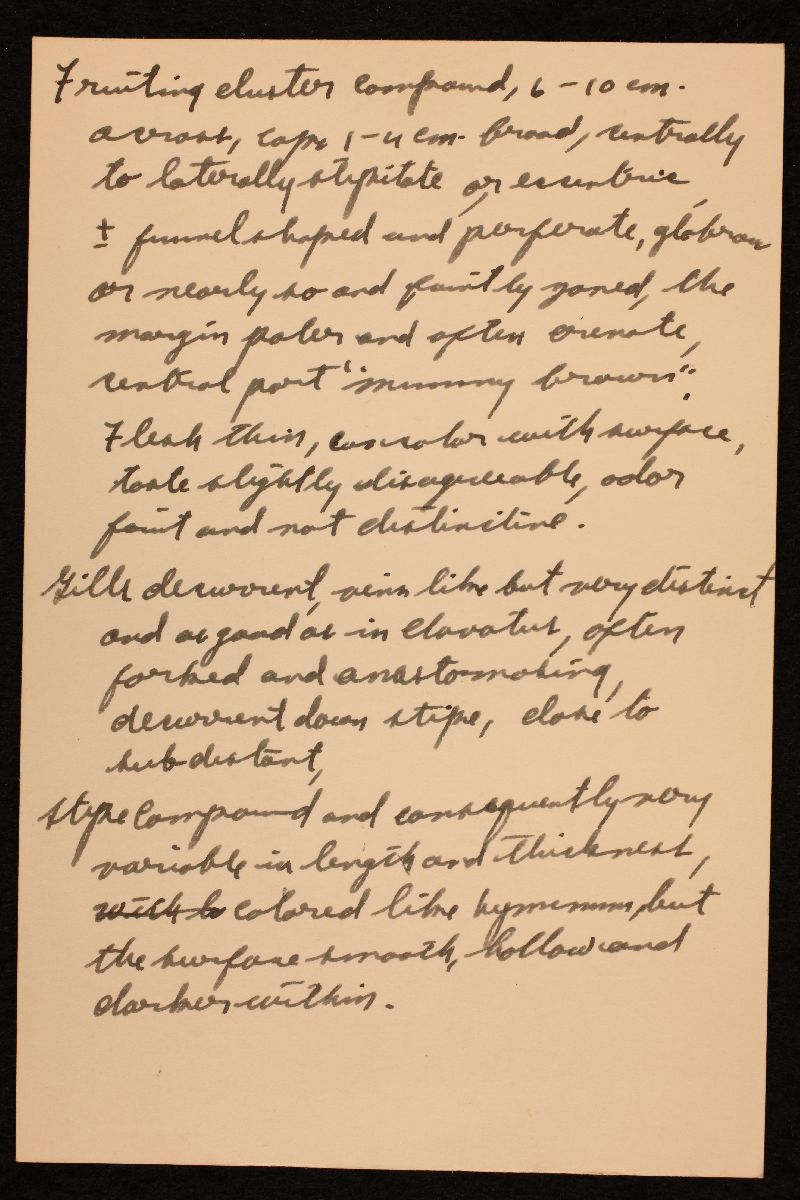 Fruiting cluster compound, 6 – 10 cm.
across, caps 1 – 4 cm. broad, centrally
to laterally stipitate, or eccentric,
± funnel shaped and perforate, glabrous
or nearly so and faintly zoned, the
margin paler and often crenate,
central part "mummy brown".
Flesh thin, concolor with surface,
taste slightly disagreeable, odor
faint and not distinctive.
Gills decurrent, vein like but very distinct
and as good as in clavatus, often
forked and anastomosing,
decurrent down stipe, close to
sub-distant,
Stipe compound and consequently very
variable in length and thickness,
with b colored like hymenium, but
the surface smooth, hollow and
darker within.